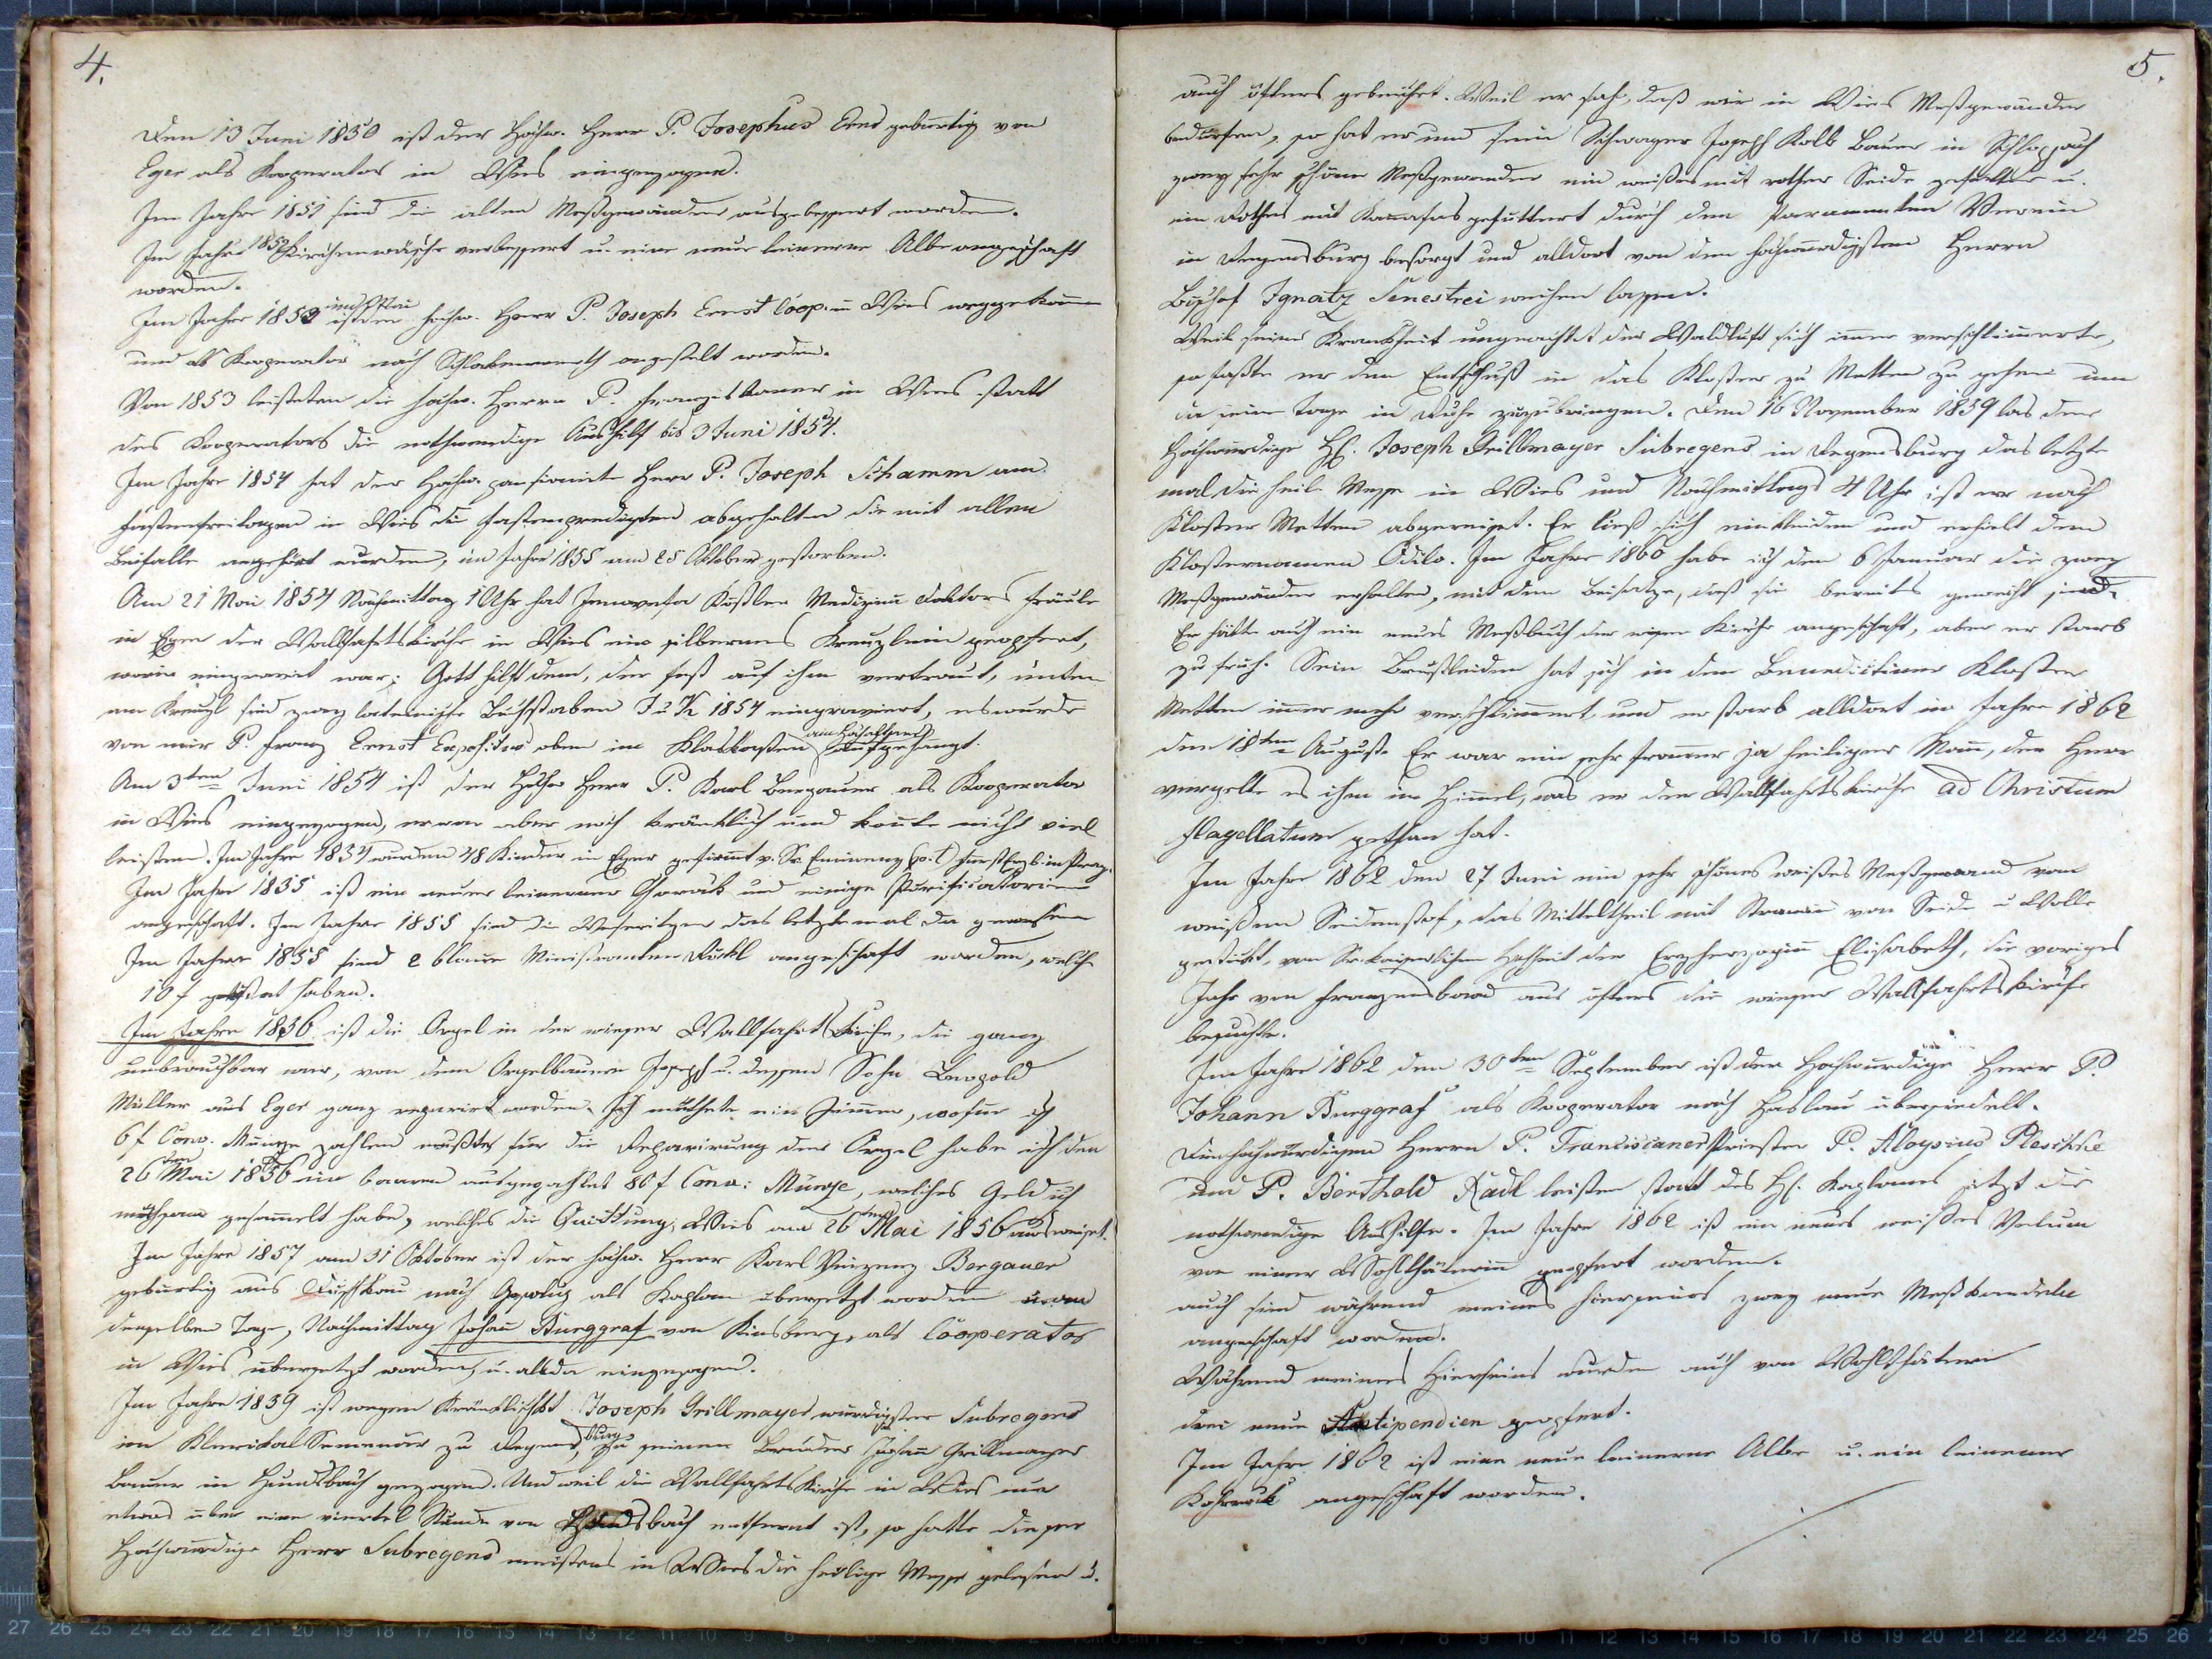 4.
Den 13 Juni 1850 ist der Hochw. Herr P. Josephus Ernst gebürtig von
Eger als Kooperator in Wies eingezogen.
Im Jahre 1851 sind die alten Meßgewänder ausgebessert worden.
Im Jahre 1852 Kirchenwäsche verbessert u. eine neue leinerne Albe angeschaft
worden.
Im Jahre 1852 ist der hochw. Herr P. Joseph Ernst Coop. in Wies weggekomen
und als Kooperator nach angestelt worden.
Von 1853 leisteten die hochw. Herrn P. Franziskaner in Wies statt
des Kooperators die nothwendige Aushilf bis 3 Juni 1854.
Im Jahre 1854 hat der Hochw. pensionirte Herr P. Joseph Schamm am
Fastenfreitagen in Wies die Fastenpredigten abgehalten die mit allem
Beifalle angehört wurden, im Jahre 1855 am 25 Oktober gestorben.
Am 21 Mai 1854 Nachmittag 1 Uhr hat Jenovefa Köstler Medizin Doktors Fräule
in Eger der Wallfahrtskirche in Wies ein silbernes Kreuzlein geopfert,
worin eingravirt war: Gott hilft dem, der fest auf ihn vertraut, unten
am Kreuzl sind zwey lateinische Buchstaben J u K 1854 eingraviert, es wurde
von mir P. Franz Ernst Expositus oben im Glaskasten aufgehangt.
Am 3ten Juni 1854 ist der Hochw Herr P. Karl Bergauer als Kooperator
in Wies eingezogen, er war aber noch kränklich und konnte nicht viel
leisten. Im Jahre 1854 wurden 48 Kinder in Eger gefirmt v. Sr. Eminenz (p.t) Fürst Erzb. in Prag.
Im Jahre 1855 ist ein neuer leinerner Chorrock und einige Purificatorien
angeschaft. Im Jahre 1855 sind die das letzte mal da gewesen
Im Jahre 1855 sind 2 blaue Ministranten Röckl angeschaft worden, welche
10 f gekostet haben.
Im Jahre 1856 ist die Orgel in der wieser Wallfahrtskirche, die ganz
unbrauchbar war, von dem Orgelbauer Joseph u. dessen Sohn Leopold
Müller aus Eger ganz repariert worden. Ich miethete ein Zimmer, wofür ich
6 f Conv. Münze zahlen mußte, für die Reparirung der Orgel habe ich den
26ten Mai 1856 im baaren ausgezahlet 80 f Conv: Münze, welches Geld ich
mühsam gesammelt habe, welches die Quittung: Wies am 26ten Mai 1856 ausweiset.
Im Jahre 1857 am 31 Oktober ist der hochw. Herr Karl Vinzenz Bergauer
gebürtig aus Duschkau nach als Kaplan übersetzt worden u. am
denselben Tage, Nachmittag Johann Burggraf von Kinsberg, als Cooperator
in Wies übersetzt worden, u. allda eingezogen.
Im Jahre 1859 ist wegen Kränklichkt Joseph Grillmayer würdigster Subregens
im Klerikal Seminar zu Regensburg zu seinem Bruder Johann Grillmayer
Bauer in Hundsbach gezogen. Und weil die Wallfahrtskirche in Wies nur
etwas über eine viertel Stunde von Hundsbach entfernt ist, so hatte dieser
Hochwürdige Herr Subregens meistens in Wies die heilige Messe gelesen u.
5.
auch öfters gebeichtet. Weil er sah, daß wir in Wies Meßgewänder
bedürfen, so hat er und sein Schwager Joseph Kolb Bauer in Schloppach
zwey sehr schöne Meßgewänder ein weißes mit rother Seide gefüttert u.
ein Rothes mit Kanafas gefüttert durch den Paramenten Verein
in Regensburg besorgt und alldort von dem hochwürdigsten Herrn
Bischof Ignatz Senestrei weihen lassen.
Weil seine Krankheit ungeachtet der Waldluft sich immer verschlimmerte,
so faßte er den Entschluß in das Kloster zu Metten zu gehen um
da seine Tage in Ruhe zuzubringen. Den 16 November 1859 las der
Hochwürdige H. Joseph Grillmayer Subregens in Regensburg das letzte
mal die heil. Messe in Wies und Nachmittag 4 Uhr ist er nach
Kloster Metten abgereiset. Er ließ sich einkleiden und erhielt den
Klosternamen Odilo. Im Jahre 1860 habe ich den 6 Januar die zwey
Meßgewänder erhalten, mit dem Beisatze, daß sie bereits geweiht sind.
Er hätte auch ein neues Meßbuch der wieser Kirche angeschaft, aber er starb
zu früh. Sein Brustleiden hat sich in dem Benedictiner Kloster
Metten immer mehr verschlimmert, und er starb alldort im Jahre 1862
den 18ten August. Er war ein sehr frommer ja heiliger Mann, der Herr
vergelte es ihm im Himmel, was er der Wallfahrtskirche ad Christum
flagellatum gethan hat.
Im Jahre 1862 den 27 Juni ein sehr schönes weißes Meßgewand von
weißem Seidenstof, das Mitteltheil mit von Seide u Wolle
gestickt, von Sr. kaiserlichen Hoheit der Erzherzogin Elisabeth, die voriges
Jahr von Franzensbad aus öfters die wieser Wallfahrtskirche
besuchte.
Im Jahre 1862 den 30ten September ist der Hochwürdige Herr P.
Johann Burggraf als Kooperator nach Haslau übersiedelt.
Die hochwürdigen Herrn P. Franciscaner Priester P. Aloysius
und P. Berthold Radl leisten statt des H. Kaplanes jetzt die
nothwendige Aushilfe. Im Jahre 1862 ist ein neues weisses Velum
von einer Wohlthäterin geopfert worden.
auch sind während meines Hierseins zwey neue Meßkandeln
angeschaft worden.
Während meines Hierseins wurden auch von Wohlthätern
drei neue Antipendien geopfert.
Im Jahre 1862 ist eine neue leinerne Albe u. ein leinerner
Kohrrock angeschaft worden.